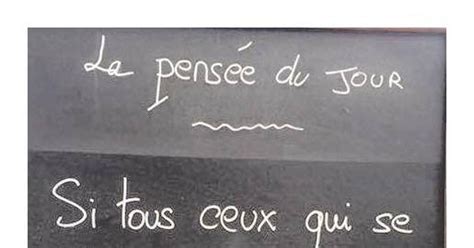 La pensée du JOUR
Si tous ceux qui se